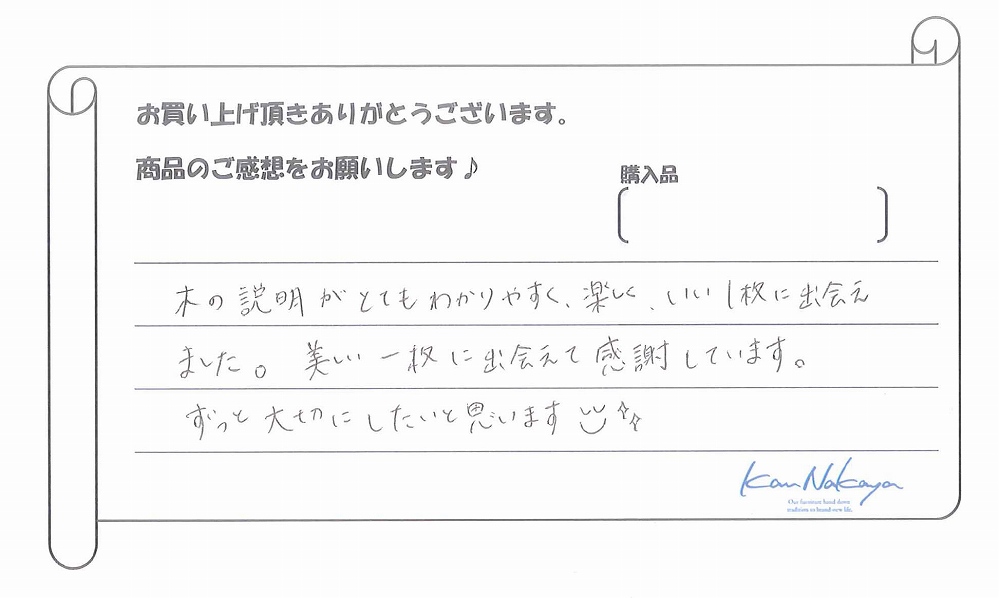 お買い上げ頂きありがとうございます。
商品のご感想をお願いします♪
購入品
木の説明がとてもわかりやすく、楽しく、いい1枚に出会え
ました。美しい一枚に出会えて感謝しています。
ずっと大切にしたいと思います
Kan Nakaya
Our furniture hand down
tradition to brand new life.